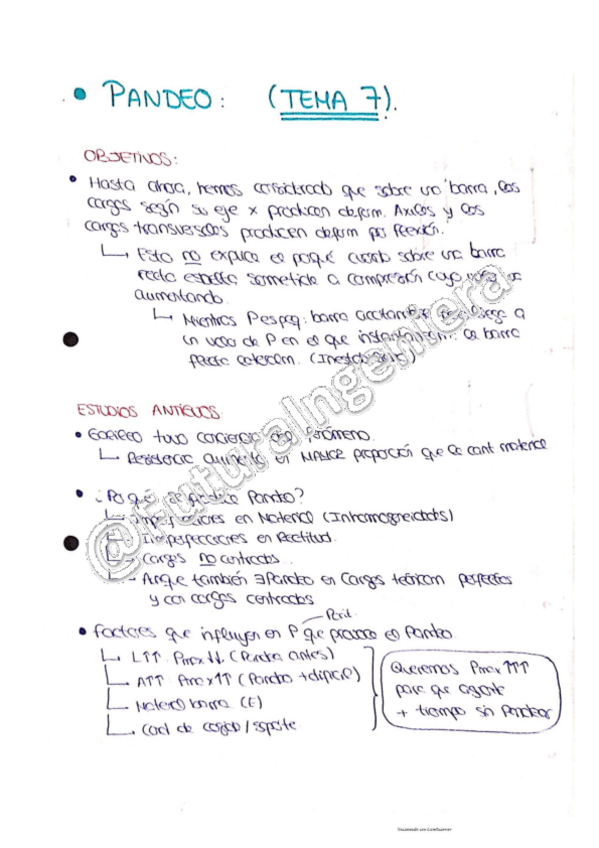 • PANDEO: (TEMA 7).
OBJETIVOS:
• Hasta ahora, hemos considerado que sobre una barra, las
cargas según su eje x producen deform. Axiales y las
cargas transversales producen deform por flexión.
↳ Esto no explica el porqué cuando sobre una barra
recta esbelta sometida a compresión cuyo valor va
aumentando.
↳ Mientras P espeq: barra
un valor de P en el que barra
puede colapsar.
ESTUDIOS ANTIGUOS
• tuvo conciencia del fenómeno.
↳ Resistencia aumenta en MAYOR proporción que la cant material
• ¿Por qué se produce Pandeo?
↳ Imperfecciones en Material (Inhomogneidads)
↳ Imperfecciones en Rectitud.
↳ Cargas no centradas.
↳ Aunque también ∃ Pandeo en Cargas teóricam perfectas
y con cargas centradas
Pcrit
• Factores que influyen en P que produce el Pandeo.
↳ L↑↑ Pmax↓↓ (Pandea antes)
↳ A↑↑ Pmax↑↑ (Pandeo + dificil)
↳ Material barra (E)
↳ Cond de / soporte
Queremos Pmax↑↑↑
para que aguante
+ tiempo sin Pandear
@FuturaIngeniera
Escaneado con CamScanner